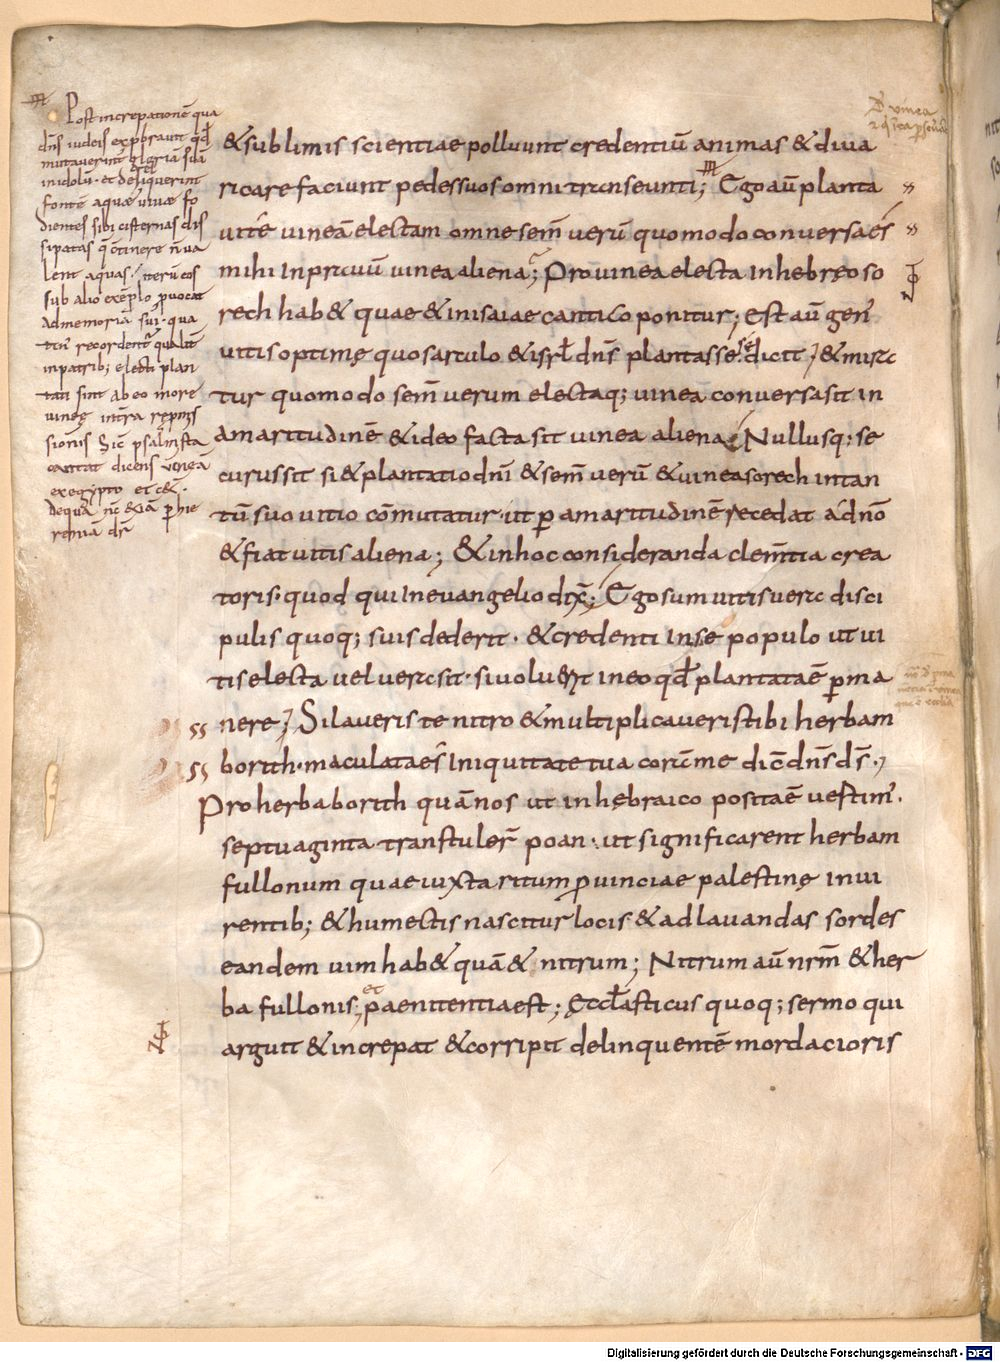 Post increpationē qua
dn̄s iudeis exprobrauit qd̄
mutauerint gloriā suā
in idolū· et dereliquerint
fontē aquæ uiuæ fo
dientes sibi cisternas dis
sipatas q̄ ctinere n̄ ua
lent aquas; iterū eos
sub alio exēplo ꝓuocat
ad memoriā sui· qua
recordent qualit̄
inpatrib; electi plan
tati sint ab eo more
uineę
sionis Sic psalmista
cantat dicens uineā
ex egypto et c&·
de qua nc̄ &iā ꝑ hie
remiā dr̄
& sublimis scientiae polluunt credentiū animas & diua
ricare faciunt pedes suos omni transeunti; Ego aū planta
ui tē uineā electam omne sem̄ verū quomodo conversa és
mihi In prauū uinea aliena; Pro uinea electa In hebręo so
rech hab& quae & in isaiae cantico ponitur; Est aū gen̄
uitis optimę quo sarculo & isrl̄ dn̄s plantasse se dicit; & mira
tur quomodo sem̄ verum electaq; uinea conversa sit in
amaritudinē & ideo facta sit uinea aliena; Nullusq; se
curus sit si & plantatio dn̄i & sem̄ verū & uinea sorech intan
tū suo uitio cōmutatur· ut ꝑ amaritudinē recedat a dn̄o
& fiat uitis aliena; & in hoc consideranda clem̄tia crea
toris· quod qui In evangelio dix̄; Ego sum uitis vera disci
pulis quoq; suis dederit· & credenti In se populo ut ui
tis electa uel vera sit· si uoluerit in eo qd̄ plantata ē ꝑma
nere; Si laveris te nitro & multiplicaveris tibi herbam
borith· maculata es̄ In iniquitate tua corā me dic̄ dn̄s ds̄·;
Pro herba borith quā nos ut in hębraico posita ē uertim̄·
septuaginta transtuler̄ poan· ut significarent herbam
fullonum quae iuxta ritum ꝓuinciae palestinę in ui
rentib; & humectis nascitur locis & ad lauandas sordes
eandem uim hab& quā & nitrum; Nitrum aū nrm̄ & her
ba fullonis; et paenitentia est; Ęccl̄asticus quoq; sermo qui
arguit & increpat & corripit delinquentē mordacioris
Digitalisierung gefördert durch die Deutsche Forschungsgemeinschaft - DFG